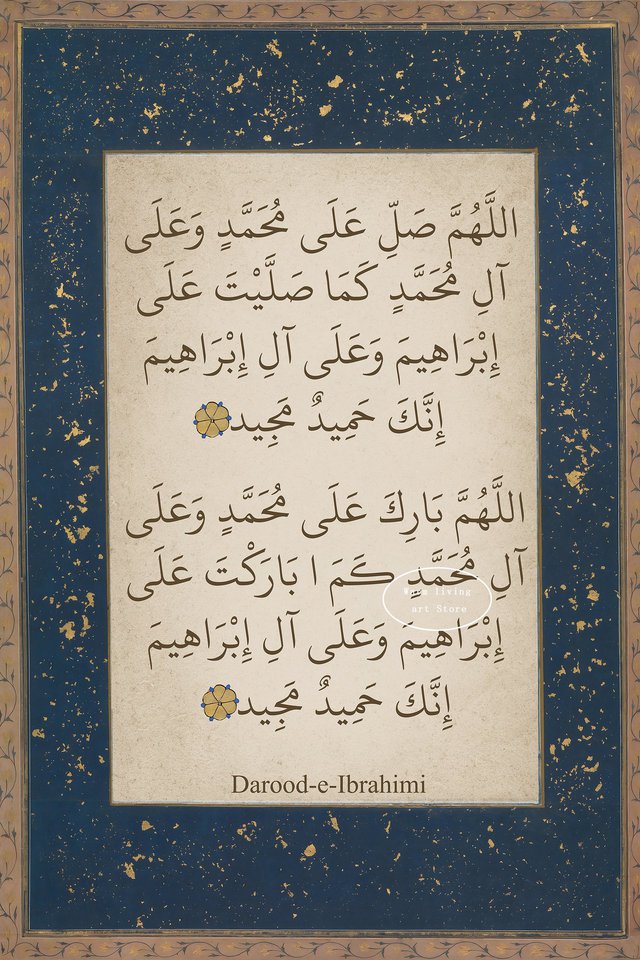 اللَّهُمَّ صَلِّ عَلَى مُحَمَّدٍ وَعَلَى
آلِ مُحَمَّدٍ كَمَا صَلَّيْتَ عَلَى
إِبْرَاهِيمَ وَعَلَى آلِ إِبْرَاهِيمَ
إِنَّكَ حَمِيدٌ مَجِيد
اللَّهُمَّ بَارِكَ عَلَى مُحَمَّدٍ وَعَلَى
آلِ مُحَمَّدٍ كَمَ ا بَارَكْتَ عَلَى
إِبْرَاهِيمَ وَعَلَى آلِ إِبْرَاهِيمَ
إِنَّكَ حَمِيدٌ مَجِيد
Darood-e-Ibrahimi
Warm living
art Store